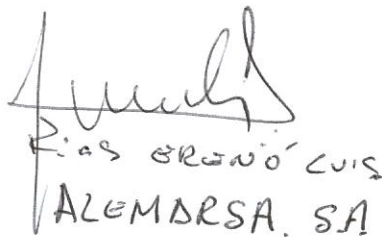 Rias ERENÓ LUIS
ALEMARSA. SA